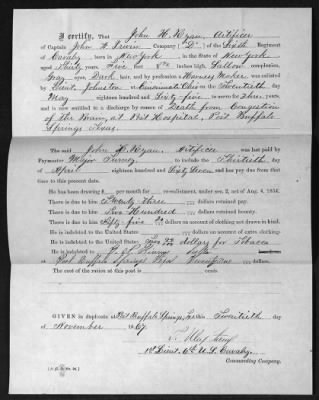 I certify, That John H. Ryan, Artificer
of Captain John A. Irwin Company ("D") of the Sixth Regiment
of Cavalry, born in New York, in the State of New York
aged Thirty years, Five feet inches high, Sallow complexion,
Gray eyes, Dark hair, and by profession a Harness Maker, was enlisted
by Lieut. Johnston at Cincinnati Ohio on the Twentieth day
May eighteen hundred and Sixty five to serve for Three years,
and is now entitled to a discharge by reason of Death from Congestion
of the Brain, at Post Hospital, Fort Buffalo
Springs Texas.
The said John H. Ryan, Artificer was last paid by
Paymaster Major to include the Thirtieth day
of April eighteen hundred and Sixty Seven, and has pay due from that
time to the present date.
He has been drawing $ per month for re-enlistment, under sec. 2, act of Aug. 4, 1854.
There is due to him Twenty three dollars retained pay.
There is due to him Two Hundred dollars retained bounty.
There is due to him Fifty five dollars on account of clothing not drawn in kind.
He is indebted to the United States dollars on account of clothing overdrawn.
He is indebted to the United States dollars for Tobacco
He is indebted to Sutler
at Post Buffalo Springs Texas dollars.
The cost of the ration at this post is cents.
GIVEN in duplicate at Post Buffalo Springs, Tex this Twentieth day
of November 1867.
1st Lieut. 6th U.S. Cavalry.
Commanding Company.